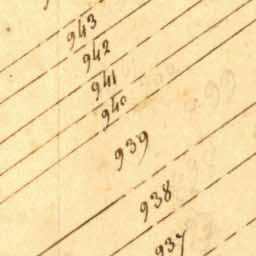 943
942
941
940
939
938
937